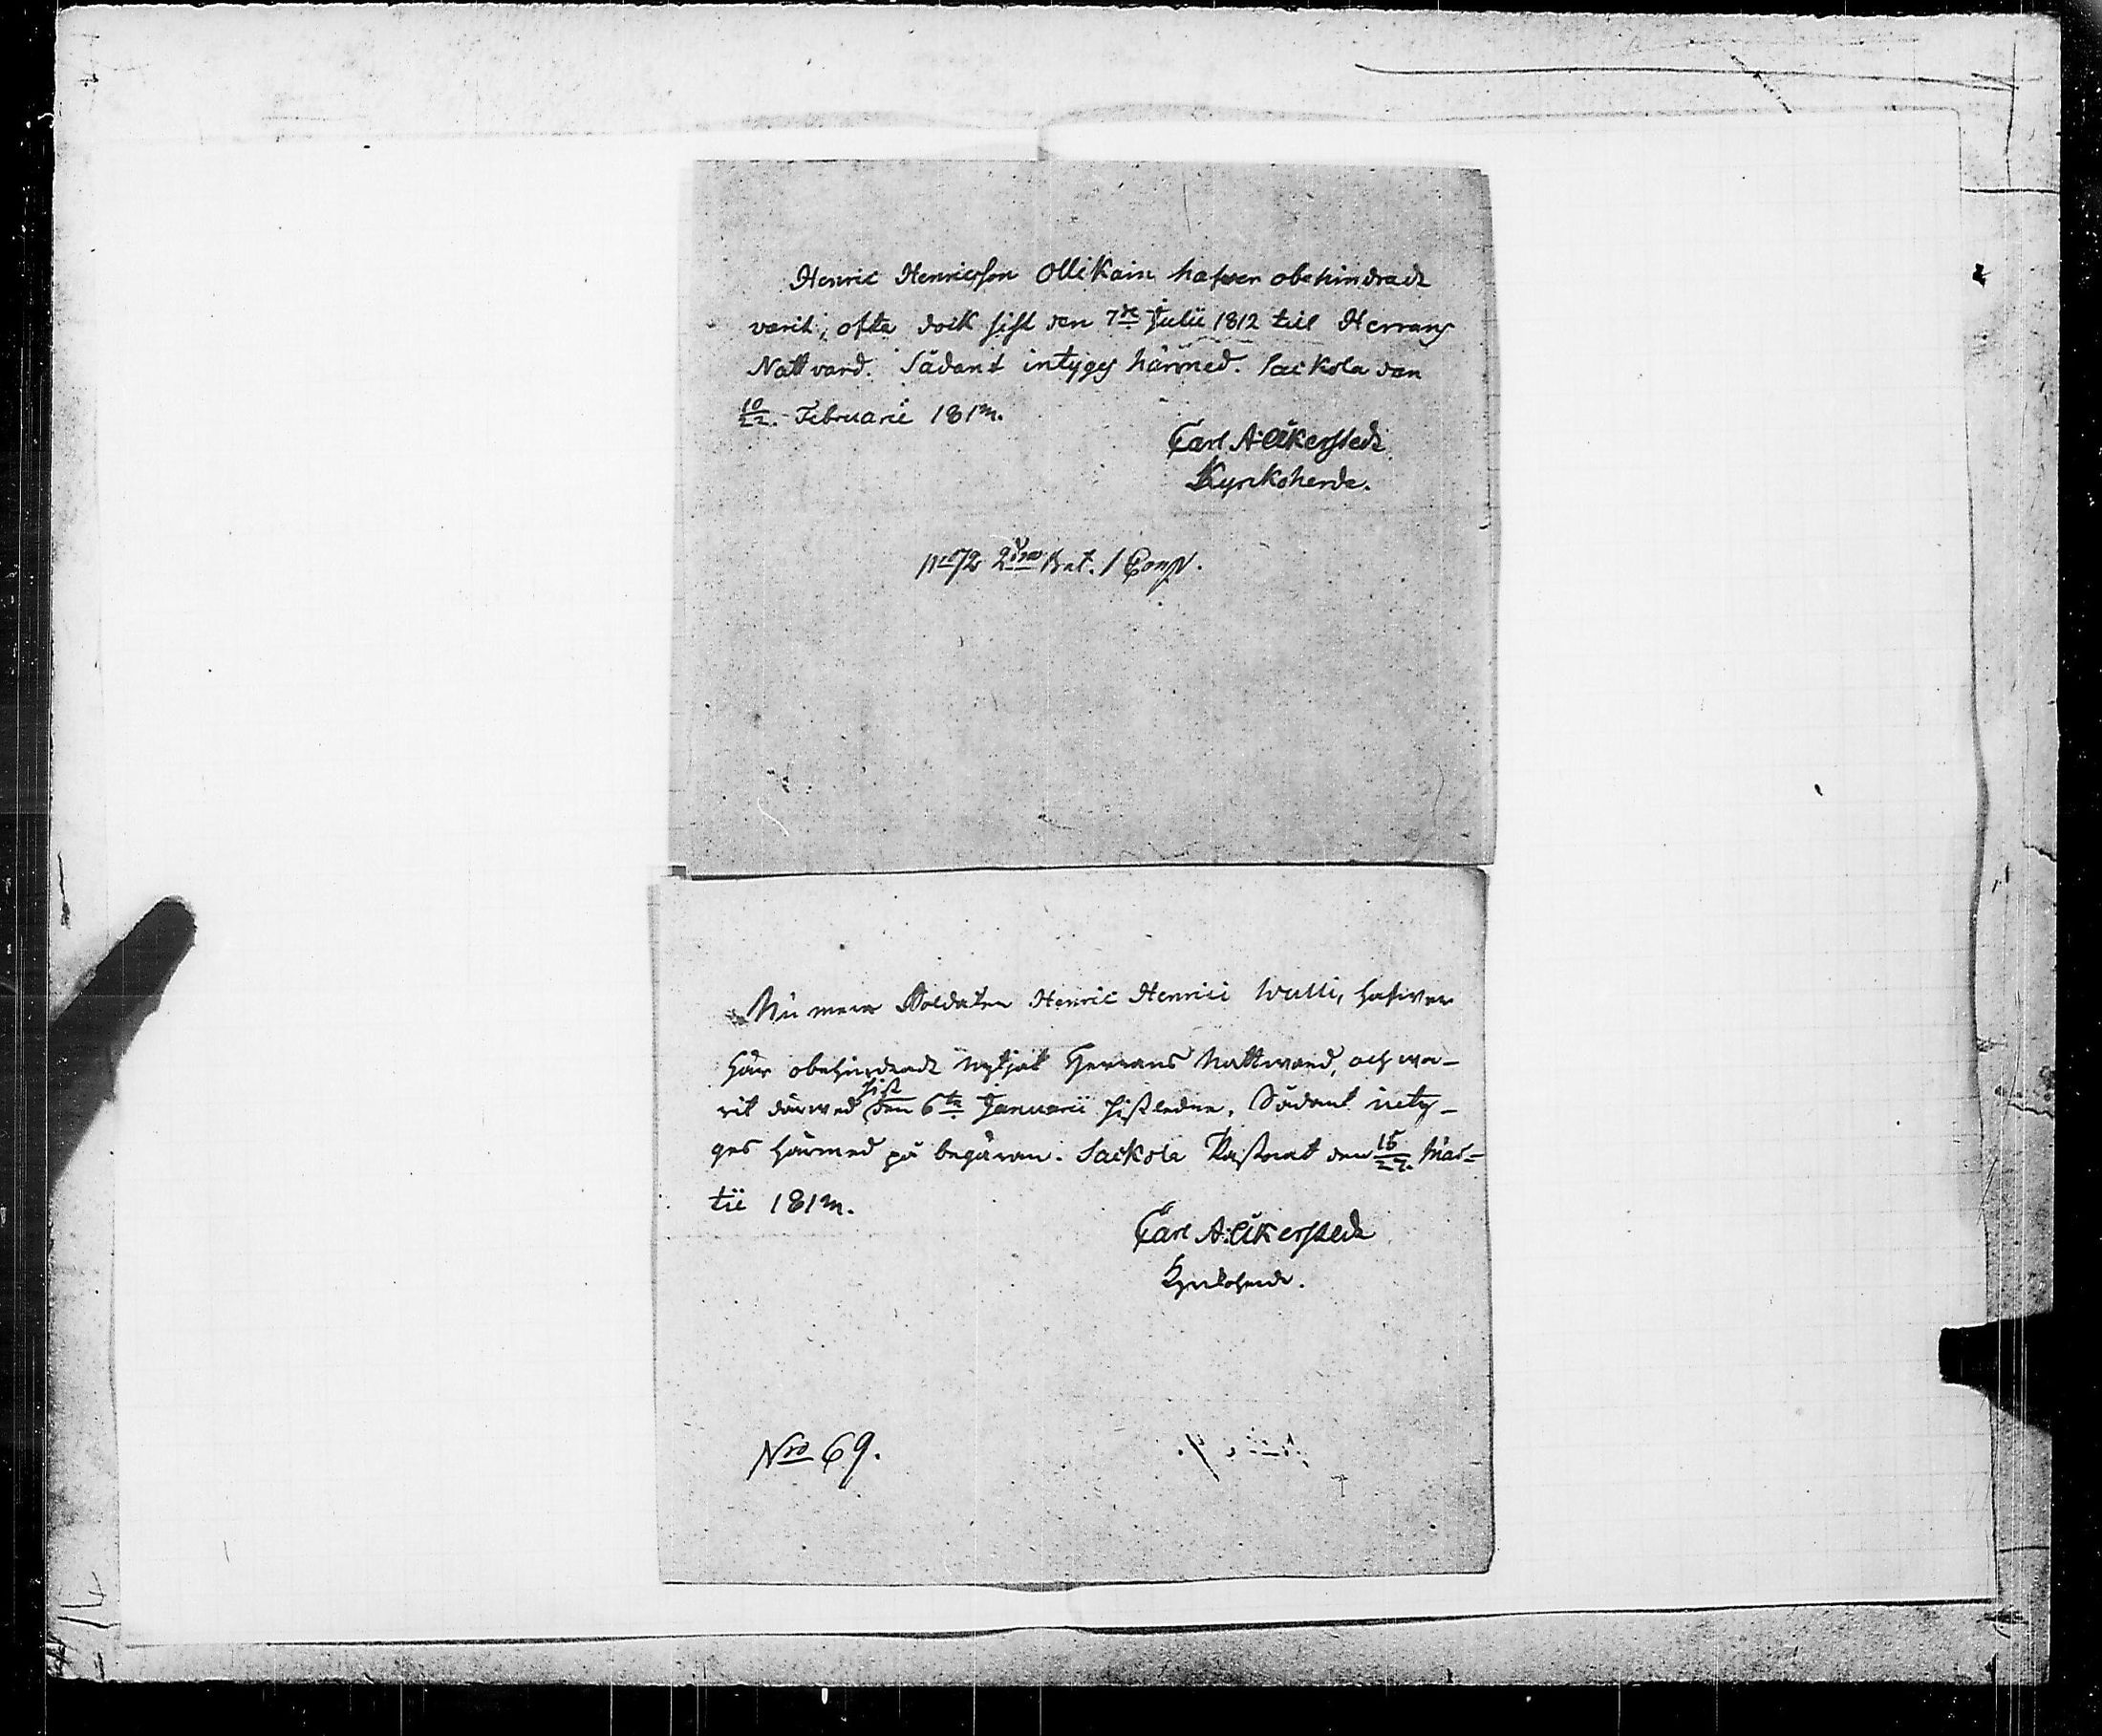 Henric Henricsson Ollikain hafver obehindradt
varit, ofta dock sist den 7de Julii 1812 till Herrans
Nattvard. Sådant intyges härmed. Sackola den
10/22. Februarii 181m.
Carl A: Åkerstedt
Kyrkoherde.
No 72 2dra Bat. 1 Comp.
Nu mera Soldaten Henric Henrici Wulli, hafwer
här obehindradt nytjat Herrans Nattward, och wa-
rit därwed sist den 6te Januarii sistledne. Sådant inty-
ges härmed på begäran. Sackola Pastorat den 15/27. Mar-
tii 181m.
Carl A: Åkerstedt
Kyrkoherde.
Nro 69.